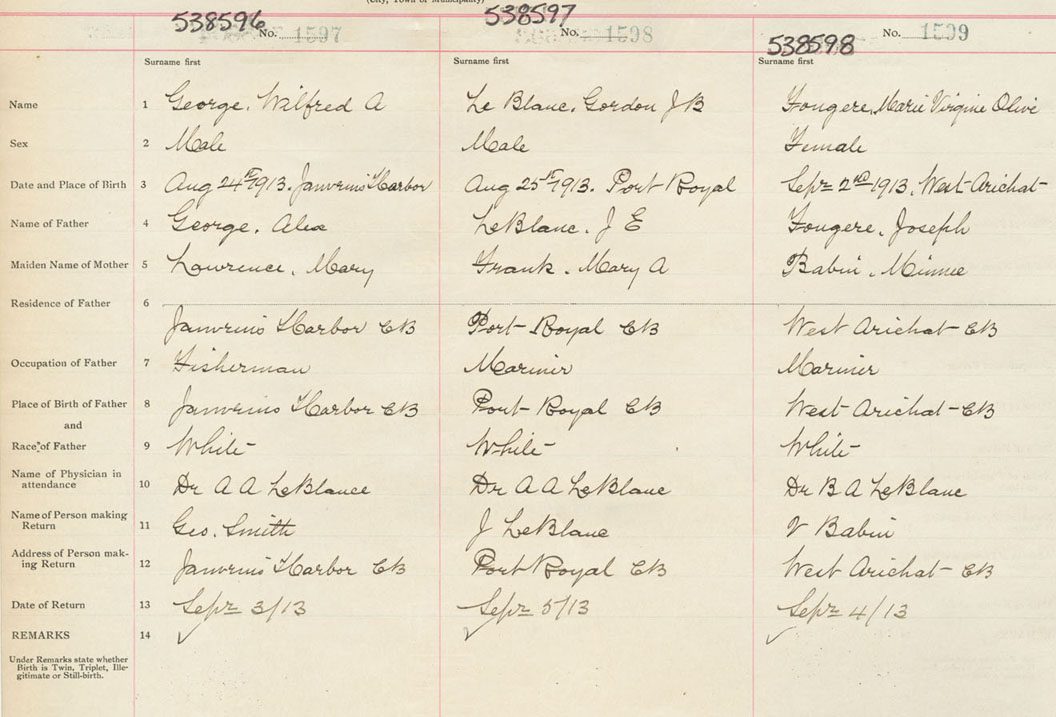 (City, Town or Municipality)
538596 No. 1597 538597 No. 1598 538598 No. 1599
Surname first Surname first Surname first
Name 1 George, Wilfred A Le Blanc, Gordon J B Fougere, Marie Virginie Olive
Sex 2 Male Male Female
Date and Place of Birth 3 Aug 24th 1913. Janvrins Harbor Aug 25th 1913. Port Royal Sepr 2nd 1913, West Arichat
Name of Father 4 George, Alex LeBlanc, J E Fougere, Joseph
Maiden Name of Mother 5 Lawrence, Mary Frank, Mary A Babin, Minnie
Residence of Father 6
Janvrins Harbor CB Port Royal CB West Arichat CB
Occupation of Father 7 Fisherman Mariner Mariner
Place of Birth of Father 8 Janvrins Harbor CB Port Royal CB West Arichat CB
and
Race of Father 9 White White White
Name of Physician in
attendance 10 Dr A A LeBlance Dr A A LeBlanc Dr B A LeBlanc
Name of Person making
Return 11 Geo. Smith J LeBlanc V Babin
Address of Person mak-
ing Return 12 Janvrins Harbor CB Port Royal CB West Arichat CB
Date of Return 13 Sepr 3/13 Sepr 5/13 Sepr 4/13
REMARKS 14
Under Remarks state whether
Birth is Twin, Triplet, Ille-
gitimate or Still-birth.